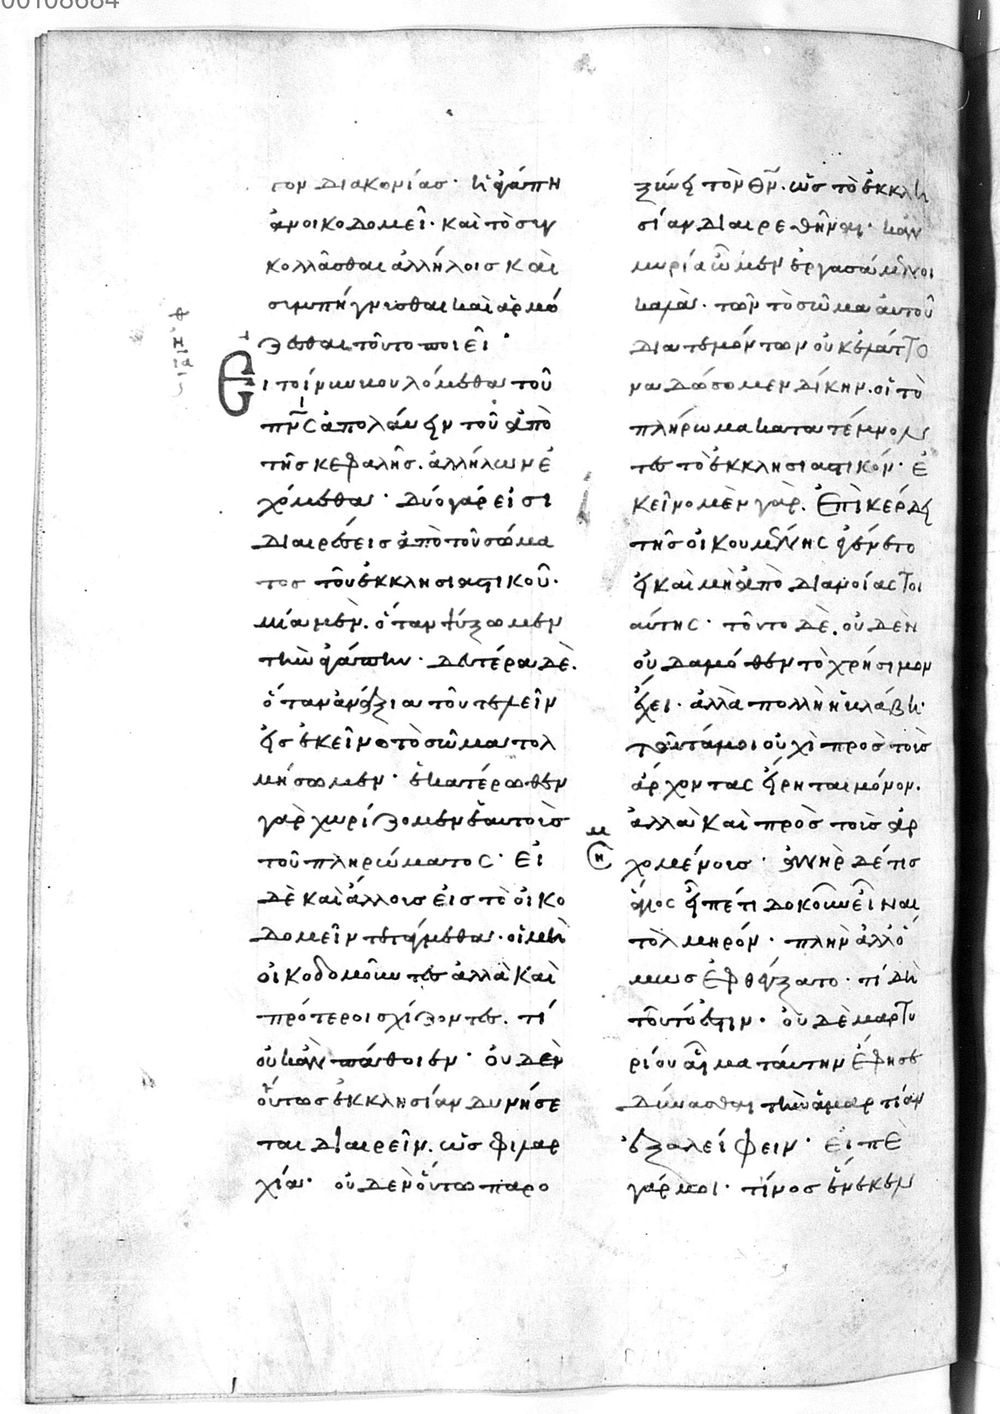 00108684
τον διακονίας· ἡ ἀγάπη
ἀνοικοδομεῖ· καὶ τὸ συγ
κολλᾶσθαι ἀλλήλοις καὶ
συμπήγνυσθαι καὶ ἁρμό
ζεσθαι τοῦτο ποιεῖ·
Εἰ τοίνυν βουλόμεθα τοῦ
πν̅ς ἀπολαύειν τοῦ ἀπὸ
τῆς κεφαλῆς. ἀλλήλων ἐ
χώμεθα· δύο γάρ εἰσι
διαιρέσεις ἀπὸ τοῦ σώμα
τος τοῦ ἐκκλησιαστικοῦ·
μία μὲν. ὅταν ψύξωμεν
τὴν ἀγάπην· δευτέρα δὲ.
ὅταν ἀνάξια τοῦ τελεῖν
εἰς ἐκεῖνο τὸ σῶμα τολ
μήσωμεν· ἑκατέρωθεν
γὰρ χωρίζομεν ἑαυτοὺς
τοῦ πληρώματος· εἰ
δὲ καὶ ἄλλους εἰς τὸ οἰκο
δομεῖν τετάγμεθα· οἱ μὴ
οἰκοδομοῦντες ἀλλὰ καὶ
πρότεροι σχίζοντες. τί
οὐκ ἂν πάθοιεν· οὐδὲν
οὕτως ἐκκλησίαν δυνήσε
ται διαιρεῖν. ὡς φιλαρ
χία· οὐδὲν οὕτω παρο
ξύνει τὸν θν̅. ὡς τὸ ἐκκλη
σίαν διαιρεθῆναι· κἂν
μυρία ὦμεν ἐργασάμενοι
καλὰ· τῶν τὸ σῶμα αὐτοῦ
διατεμόντων οὐκ ἐλάττο
να δώσομεν δίκην. οἱ τὸ
πλήρωμα κατατέμνον
τες τὸ ἐκκλησιαστικόν· ἐ
κεῖνο μὲν γὰρ. ἐπὶ κέρδει
τῆς οἰκουμένης ἐγένετο
εἰ καὶ μὴ ἀπὸ διανοίας τοι
αύτης· τοῦτο δὲ. οὐδὲν
οὐδαμόθεν τὸ χρήσιμον
ἔχει· ἀλλὰ πολλὴ ἡ βλάβη·
ταῦτά μοι οὐχὶ πρὸς τοὺς
ἄρχοντας εἴρηται μόνον.
ἀλλὰ καὶ πρὸς τοὺς ἀρ
χομένους· ἀνὴρ δέ τις
ἅγιος εἶπέ τι δοκοῦν εἶναι
τολμηρόν· πλὴν ἀλλ' ὅ
μως ἐφθέγξατο· τί δὴ
τοῦτό ἐστιν· οὐδὲ μαρτυ
ρίου αἷμα ταύτην ἔφησε
δύνασθαι τὴν ἁμαρτίαν
ἐξαλείφειν· εἰπὲ
γάρ μοι· τίνος ἕνεκεν